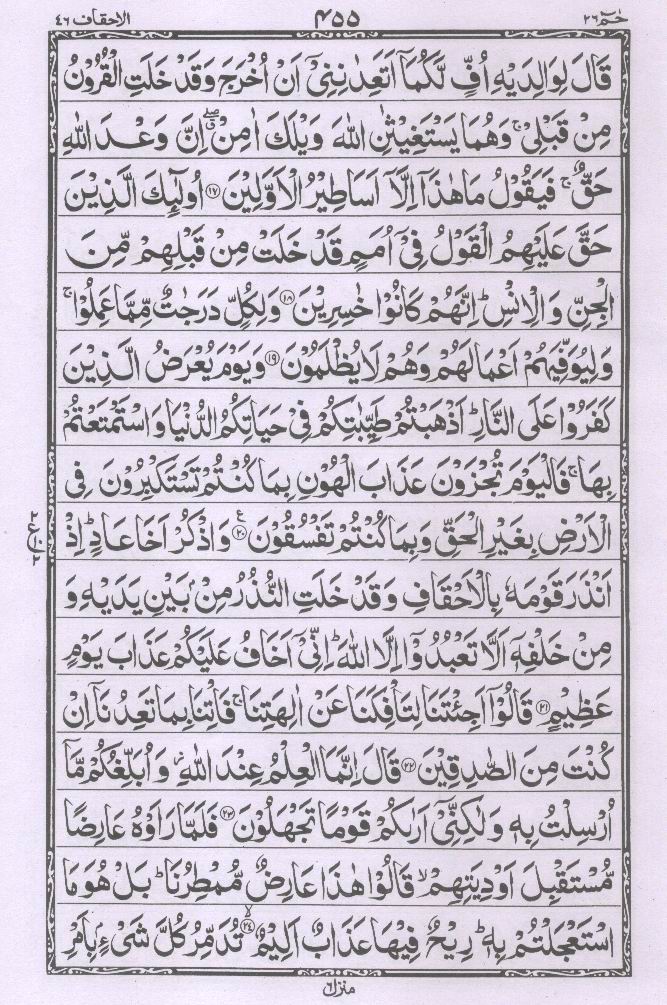 حٰمٓ ٢٦ ۴۵۵ الاحقاف ٤٦
قَالَ لِوَالِدَيْهِ اُفٍّ لَّكُمَاۤ اَتَعِدٰنِنِيْۤ اَنْ اُخْرَجَ وَقَدْ خَلَتِ الْقُرُوْنُ
مِنْ قَبْلِيْ ۚ وَهُمَا يَسْتَغِيْثٰنِ اللّٰهَ وَيْلَكَ اٰمِنْ ۖۗ اِنَّ وَعْدَ اللّٰهِ
حَقٌّ ۚ فَيَقُوْلُ مَا هٰذَاۤ اِلَّاۤ اَسَاطِيْرُ الْاَوَّلِيْنَ ﴿١٧﴾ اُولٰٓئِكَ الَّذِيْنَ
حَقَّ عَلَيْهِمُ الْقَوْلُ فِيْۤ اُمَمٍ قَدْ خَلَتْ مِنْ قَبْلِهِمْ مِّنَ
الْجِنِّ وَالْاِنْسِ ؕ اِنَّهُمْ كَانُوْا خٰسِرِيْنَ ﴿١٨﴾ وَلِكُلٍّ دَرَجٰتٌ مِّمَّا عَمِلُوْا ۚ
وَلِيُوَفِّيَهُمْ اَعْمَالَهُمْ وَهُمْ لَا يُظْلَمُوْنَ ﴿١٩﴾ وَيَوْمَ يُعْرَضُ الَّذِيْنَ
كَفَرُوْا عَلَى النَّارِ ؕ اَذْهَبْتُمْ طَيِّبٰتِكُمْ فِيْ حَيَاتِكُمُ الدُّنْيَا وَاسْتَمْتَعْتُمْ
بِهَا ۚ فَالْيَوْمَ تُجْزَوْنَ عَذَابَ الْهُوْنِ بِمَا كُنْتُمْ تَسْتَكْبِرُوْنَ فِي
الْاَرْضِ بِغَيْرِ الْحَقِّ وَبِمَا كُنْتُمْ تَفْسُقُوْنَ ﴿٢٠﴾ۧ وَاذْكُرْ اَخَا عَادٍ ؕ اِذْ
اَنْذَرَ قَوْمَهٗ بِالْاَحْقَافِ وَقَدْ خَلَتِ النُّذُرُ مِنْۢ بَيْنِ يَدَيْهِ وَ
مِنْ خَلْفِهٖۤ اَلَّا تَعْبُدُوْۤا اِلَّا اللّٰهَ ؕ اِنِّيْۤ اَخَافُ عَلَيْكُمْ عَذَابَ يَوْمٍ
عَظِيْمٍ ﴿٢١﴾ قَالُوْۤا اَجِئْتَنَا لِتَاْفِكَنَا عَنْ اٰلِهَتِنَا ۚ فَاْتِنَا بِمَا تَعِدُنَاۤ اِنْ
كُنْتَ مِنَ الصّٰدِقِيْنَ ﴿٢٢﴾ قَالَ اِنَّمَا الْعِلْمُ عِنْدَ اللّٰهِ ۖ وَاُبَلِّغُكُمْ مَّاۤ
اُرْسِلْتُ بِهٖ وَلٰكِنِّيْۤ اَرٰىكُمْ قَوْمًا تَجْهَلُوْنَ ﴿٢٣﴾ فَلَمَّا رَاَوْهُ عَارِضًا
مُّسْتَقْبِلَ اَوْدِيَتِهِمْ ۙ قَالُوْا هٰذَا عَارِضٌ مُّمْطِرُنَا ؕ بَلْ هُوَ مَا
اسْتَعْجَلْتُمْ بِهٖ ؕ رِيْحٌ فِيْهَا عَذَابٌ اَلِيْمٌ ﴿٢٤﴾ۙ تُدَمِّرُ كُلَّ شَيْءٍۭ بِاَمْرِ
منزل ٦